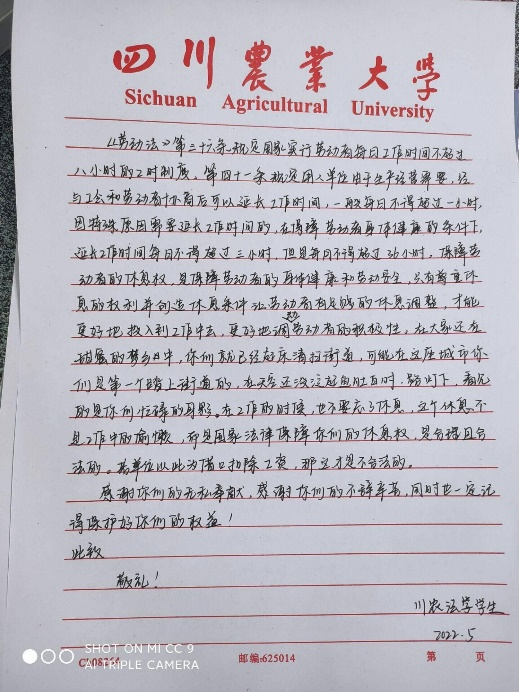 四川農業大學
Sichuan Agricultural University
《劳动法》第三十六条规定国家实行劳动者每日工作时间不超过
八小时的工时制度，第四十一条规定用人单位由于生产经营需要，经
与工会和劳动者协商后可以延长工作时间，一般每日不得超过一小时，
因特殊原因需要延长工作时间的，在保障劳动者身体健康的条件下，
延长工作时间每日不得超过三小时，但是每月不得超过36小时，保障劳
动者的休息权，是保障劳动者的身体健康和劳动安全，只有尊重休
息的权利并创造休息条件让劳动者有足够的休息调整，才能
更好地投入到工作中去，更好地调动劳动者的积极性。在大家还在
甜蜜的梦乡中，你们就已经起床清扫街道，可能在这座城市你
们是第一个踏上街道的，在天空还没泛起鱼肚白时，路灯下，看见
的是你们忙碌的身影。在工作的时候，也不要忘了休息，这个休息不
是工作中的偷懒，而是国家法律保障你们的休息权，是合理且合
法的。若单位以此为借口扣除工资，那这才是不合法的。
感谢你们的无私奉献，感谢你们的不辞辛苦，同时也一定记
得保护好你们的权益！
此致
敬礼！
川农法学学生
2022.5
邮编:625014
第 页
SHOT ON MI CC 9
AI TRIPLE CAMERA